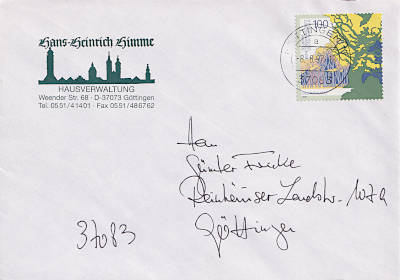 Hans-Heinrich Himme
HAUSVERWALTUNG
Weender Str. 68 · D-37073 Göttingen
Tel. 0551/41401 · Fax 0551/486762
100
GÖTTINGEN 1
a
37083
Herrn
Günter
Reinhäuser Landstr. 107a
Göttingen